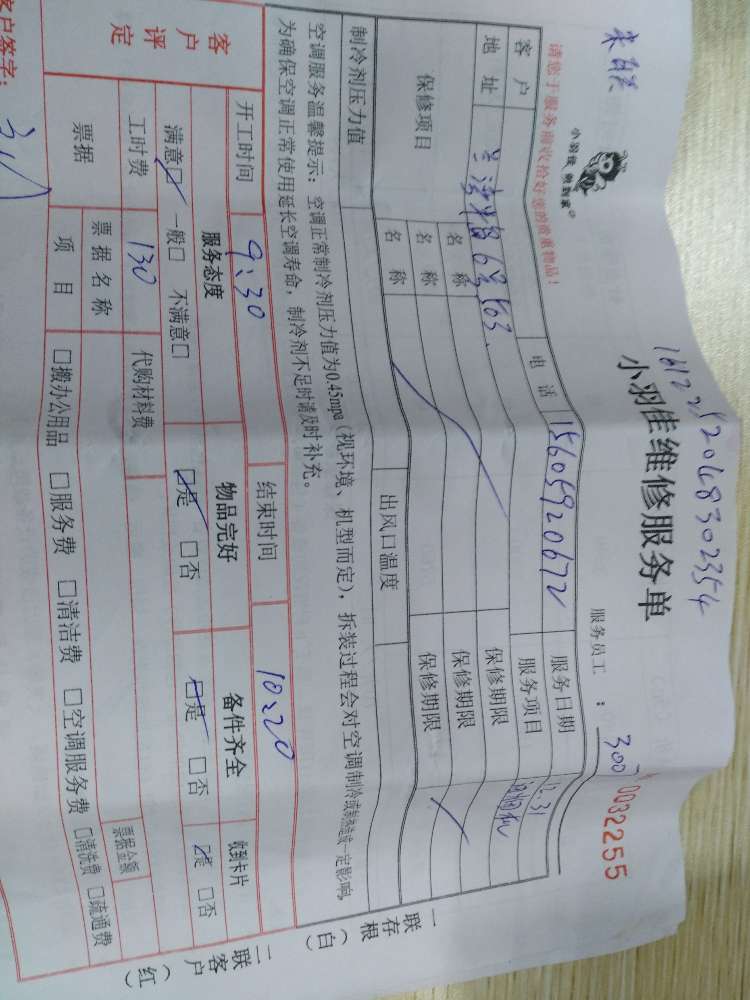 1612252068302354
小羽佳维修服务单
小羽佳 做到家
请您于服务前收拾好您的贵重物品！
服务员工：
300
0032255
客户
电话
15605920672
服务日期
12.31
地址
6号503
服务项目
保修项目
名称
保修期限
名称
保修期限
名称
保修期限
制冷剂压力值
出风口温度
空调服务温馨提示：空调正常制冷剂压力值为0.45mpa（视环境、机型而定），拆装过程会对空调制冷或制热造成一定影响，
为确保空调正常使用延长空调寿命，制冷剂不足时请及时补充。
开工时间
9:30
结束时间
10:20
客户评定
服务态度
物品完好
备件齐全
收到卡片
满意□ 一般□ 不满意□
□是 □否
□是 □否
□是 □否
工时费
130
代购材料费
票据
票据名称
票据金额
项目
□搬办公用品 □服务费 □清洁费 □空调服务费 □清洗费 □疏通费
客户签字：
一联存根（白）
二联客户（红）